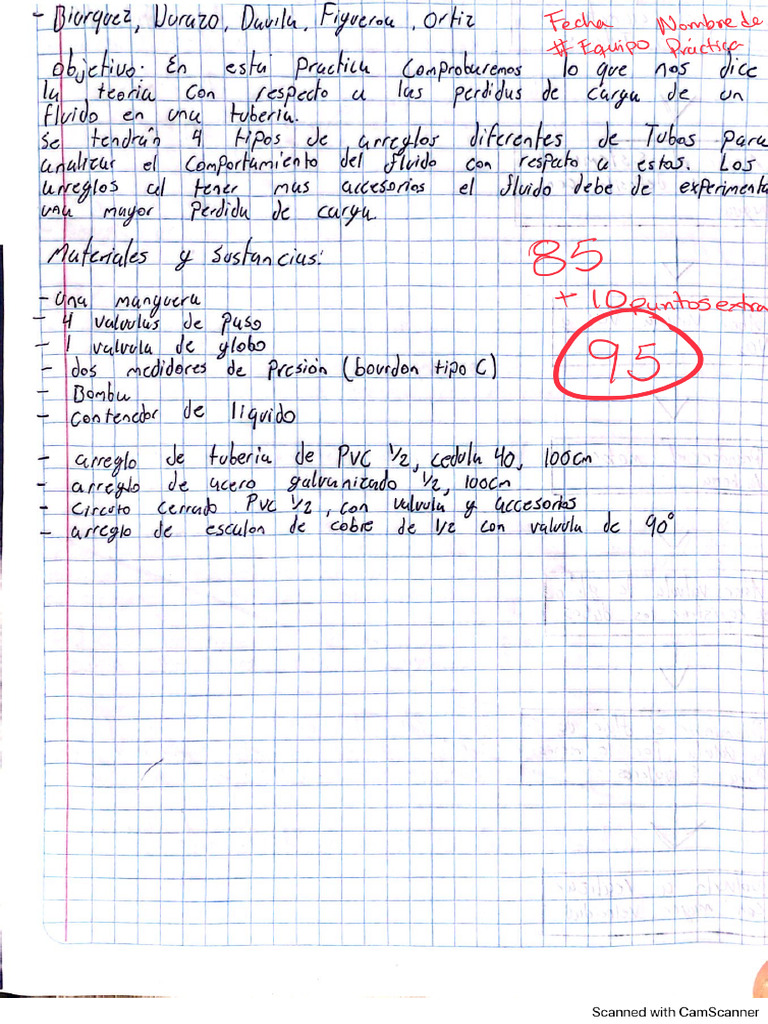 - Biorquez, Durazo, Davila, Figueroa, Ortiz
Fecha Nombre de
# Equipo Práctica
Objetivo: En esta Practica Comproburemos lo que nos dice
la teoria con respecto a las perdidas de carga de un
fluido en una tuberia.
Se tendrán 4 tipos de arreglos diferentes de Tubos para
analizar el comportamiento del fluido con respeto a estas. Los
arreglos al tener mas accesorios el fluido debe de experimenta
una mayor Perdida de carga.
Materiales y Sustancias:
85
+ 10 puntos extra
95
- Una manguera
- 4 valvulas de paso
- 1 valvula de globo
- dos medidores de Presión (bourdon tipo C)
- Bomba
- contenedor de liquido
- arreglo de tuberia de PVC 1/2, cedula 40, 100cm
- arreglo de acero galvanizado 1/2, 100cm
- Circuto cerrado PVC 1/2, con valvula y accesorios
- arreglo de escalon de cobre de 1/2 con valvula de 90°
Scanned with CamScanner